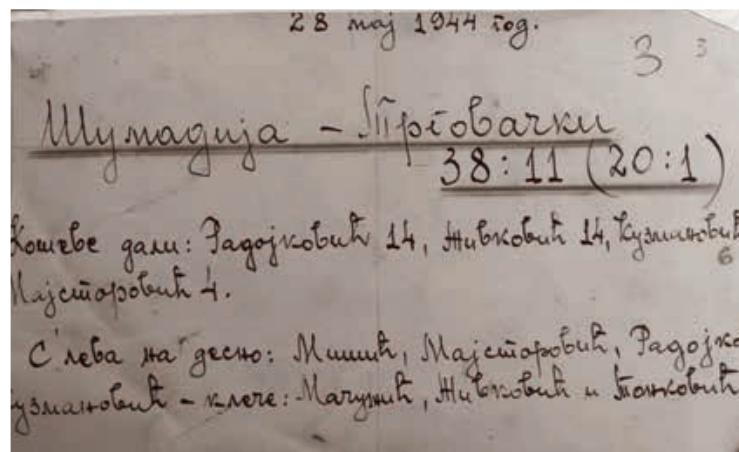 28 мај 1944 год.
3 3
Шумадија - Трговачки
38:11 (20:1)
Кошеве дали: Радојковић 14, Живковић 14, Кузмановић
6
Мајсторовић 4.
С'лева на десно: Мишић, Мајсторовић, Радојко
узмановић - клече: Мачужић, Живковић и Тонковић